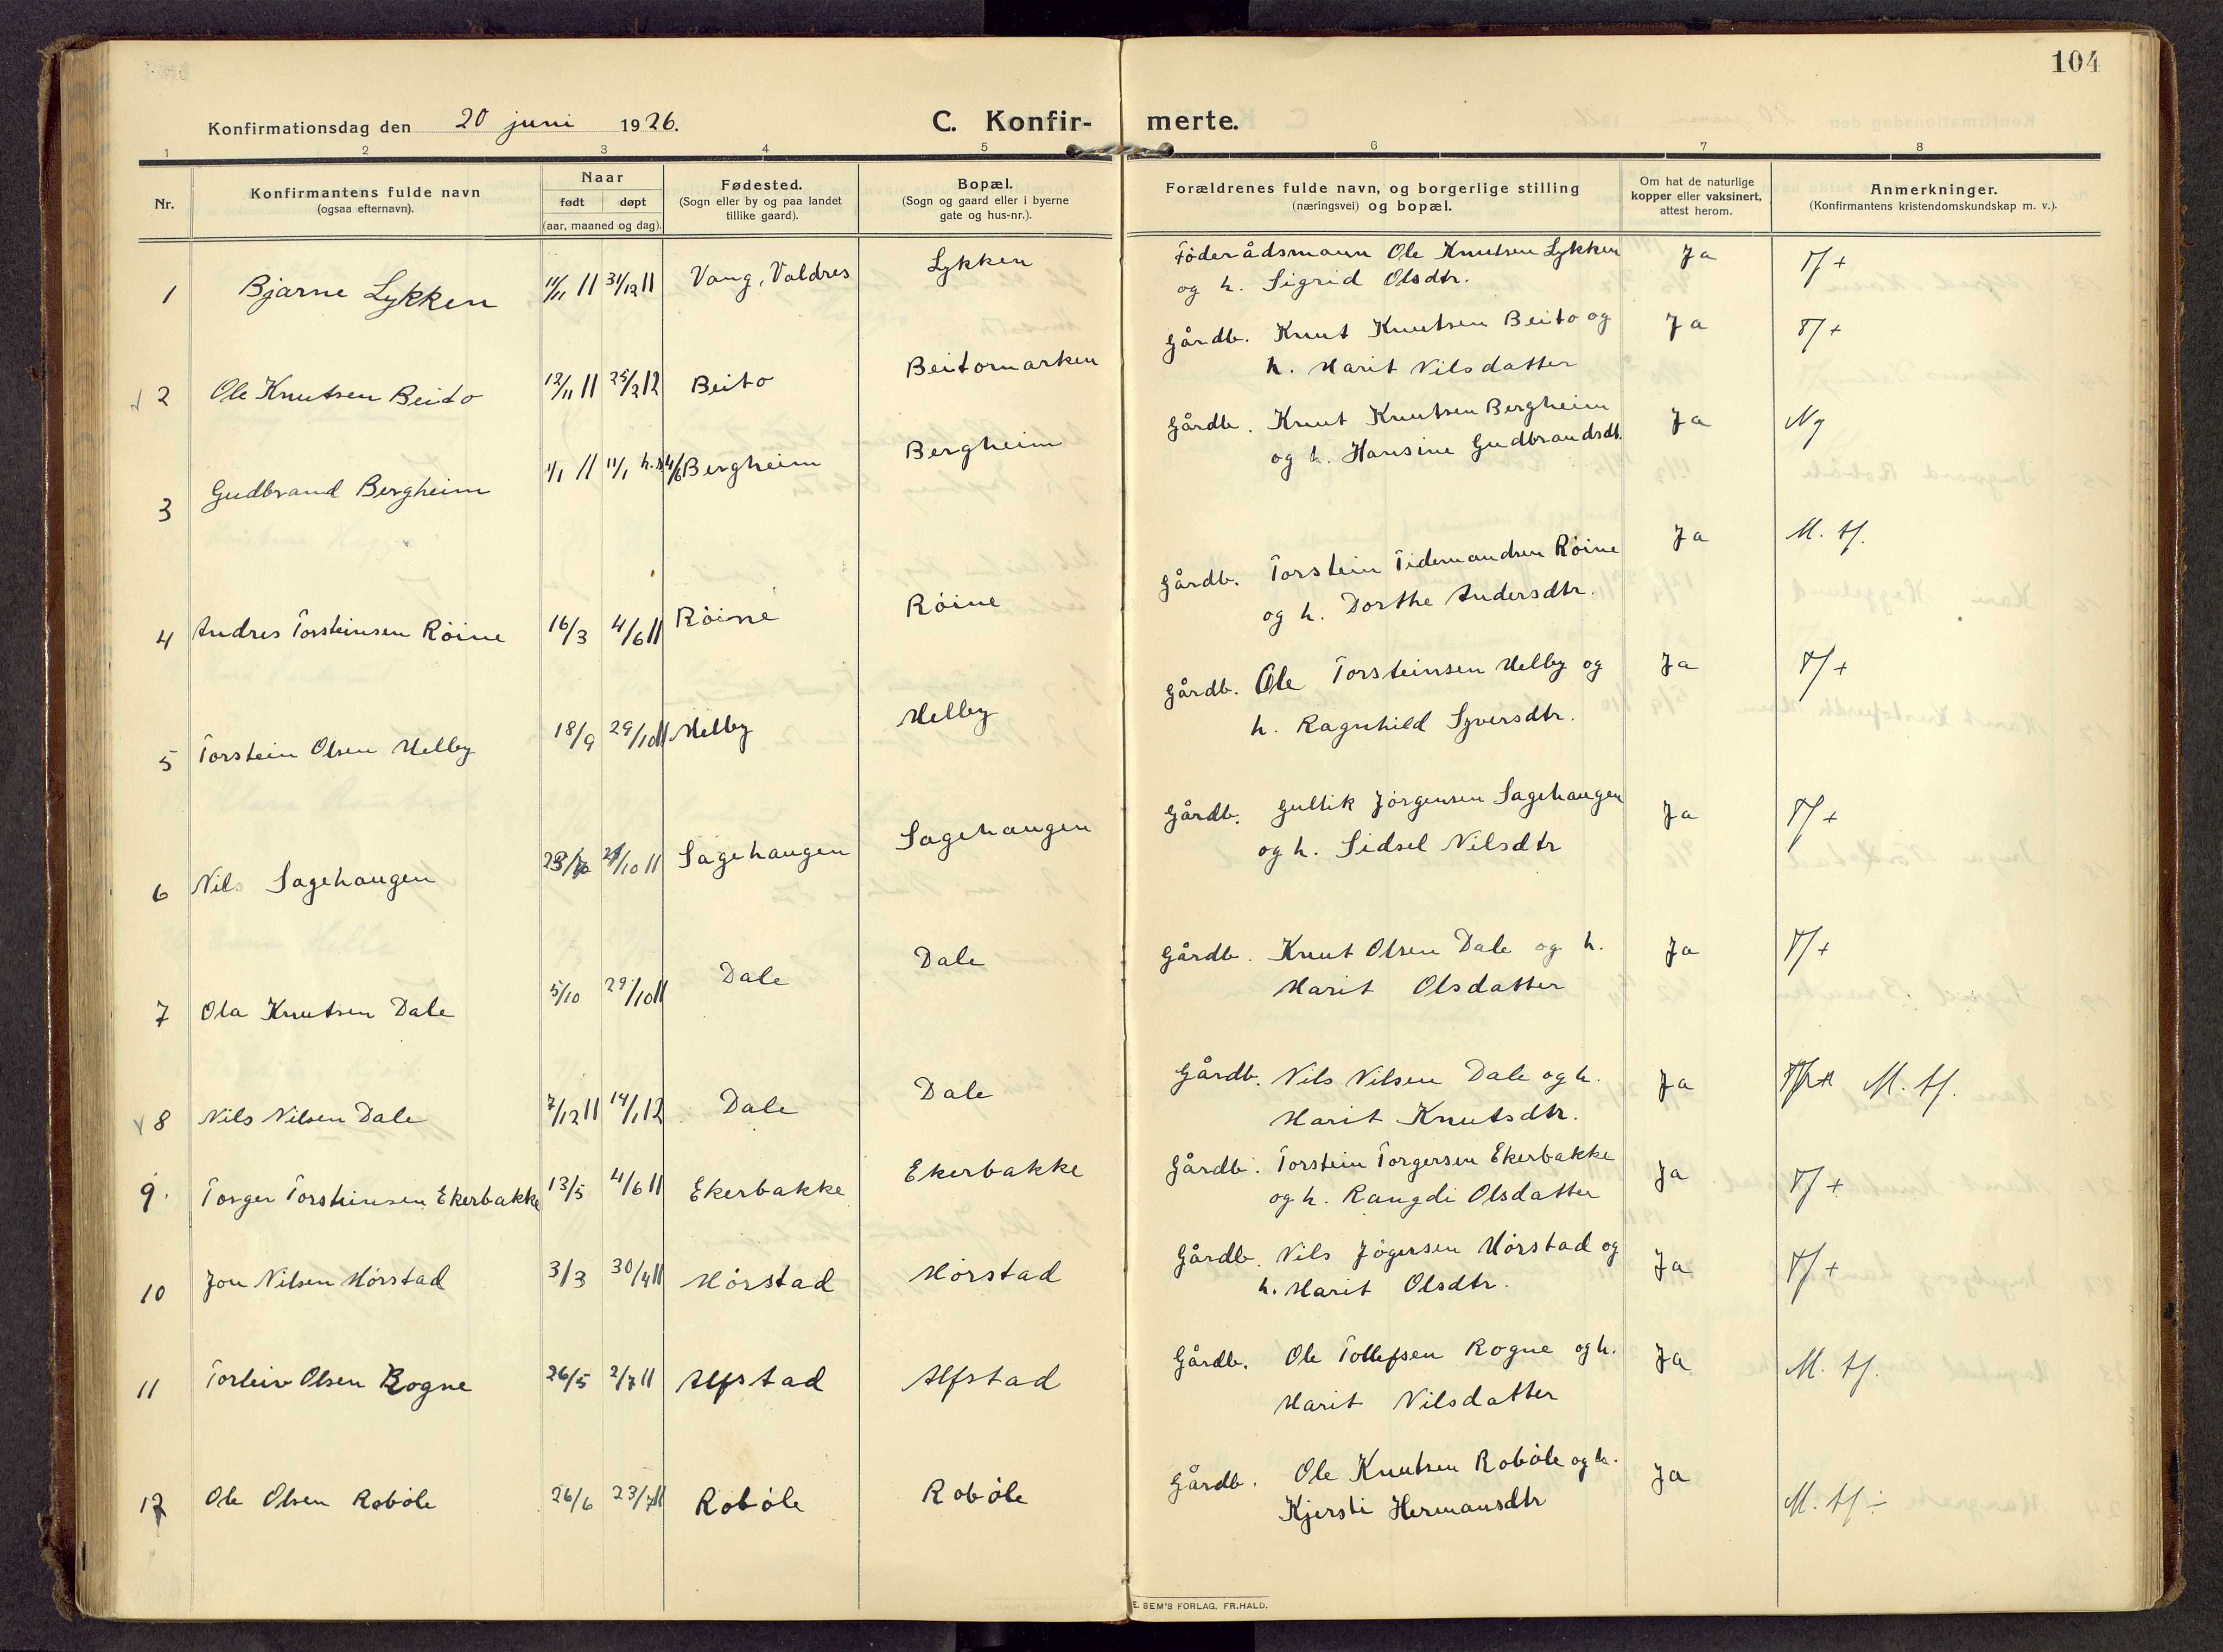 104
Konfirmationsdag den 20 juni 1926. C. Konfir- merte.
1 2 3 4 5 6 7 8
Nr.
Konfirmantens fulde navn
(ogsaa efternavn).
Naar
født døpt
(aar, maaned og dag).
Fødested.
(Sogn eller by og paa landet
tillike gaard).
Bopæl.
(Sogn og gaard eller i byerne
gate og hus-nr.).
Forældrenes fulde navn, og borgerlige stilling
(næringsvei) og bopæl.
Om hat de naturlige
kopper eller vaksinert,
attest herom.
Anmerkninger.
(Konfirmantens kristendomskundskap m. v.).
1 Bjarne Lykken 11/11 11 31/12 11 Vang, Valdres Lykken Föderådsmann Ole Knutsen Lykken Ja T/+
og h. Sigrid Olsdtr.
2 Ole Knutsen Beito 12/11 11 25/2 12 Beito Beitomarken Gårdb. Knut Knutsen Beito og Ja T/+
h. Marit Nilsdatter
3 Gudbrand Bergheim 1/1 11 11/1 h. 4/6 Bergheim Bergheim Gårdb. Knut Knutsen Bergheim Ja Ng
og h. Hansine Gudbrandsdt.
4 Andres Torsteinsen Röine 16/3 4/6 11 Röine Röine Gårdb. Torstein Tidemandsen Röine Ja M. tf.
og h. Dorthe Andersdtr.
5 Torstein Olsen Melby 18/9 29/10 11 Melby Melby Gårdb. Ole Torsteinsen Melby og Ja T/+
h. Ragnhild Syversdtr.
6 Nils Sagehaugen /10 11 Sagehaugen Sagehaugen Gårdb. Gullik Jörgensen Sagehaugen Ja T/+
og h. Sidsel Nilsdtr
7 Ola Knutsen Dale 5/10 29/10 11 Dale Dale Gårdb. Knut Olsen Dale og h. Ja T/+
Marit Olsdatter
8 Nils Nilsen Dale 7/12 11 14/1 12 Dale Dale Gårdb. Nils Nilsen Dale og h. Ja M. tf.
Marit Knutsdtr.
9. Torger Torsteinsen Ekerbakke 13/5 4/6 11 Ekerbakke Ekerbakke Gårdb. Torstein Torgersen Ekerbakke Ja T/+
og h. Rangdi Olsdatter
10 Jon Nilsen Hörstad 3/3 30/4 11 Hörstad Hörstad Gårdb. Nils Jögersen Hörstad og Ja T/+
h. Marit Olsdtr.
11 Torleiv Olsen Rogne 26/5 2/7 11 Alfstad Alfstad Gårdb. Ole Tollefsen Rogne og h. Ja M. tf.
Marit Nilsdatter
12 Ole Olsen Roböle 26/6 23/7 11 Roböle Roböle Gårdb. Ole Knutsen Roböle og h. Ja M. tf ÷
Kjersti Hermansdtr
E. SEM'S FORLAG, FR.HALD.